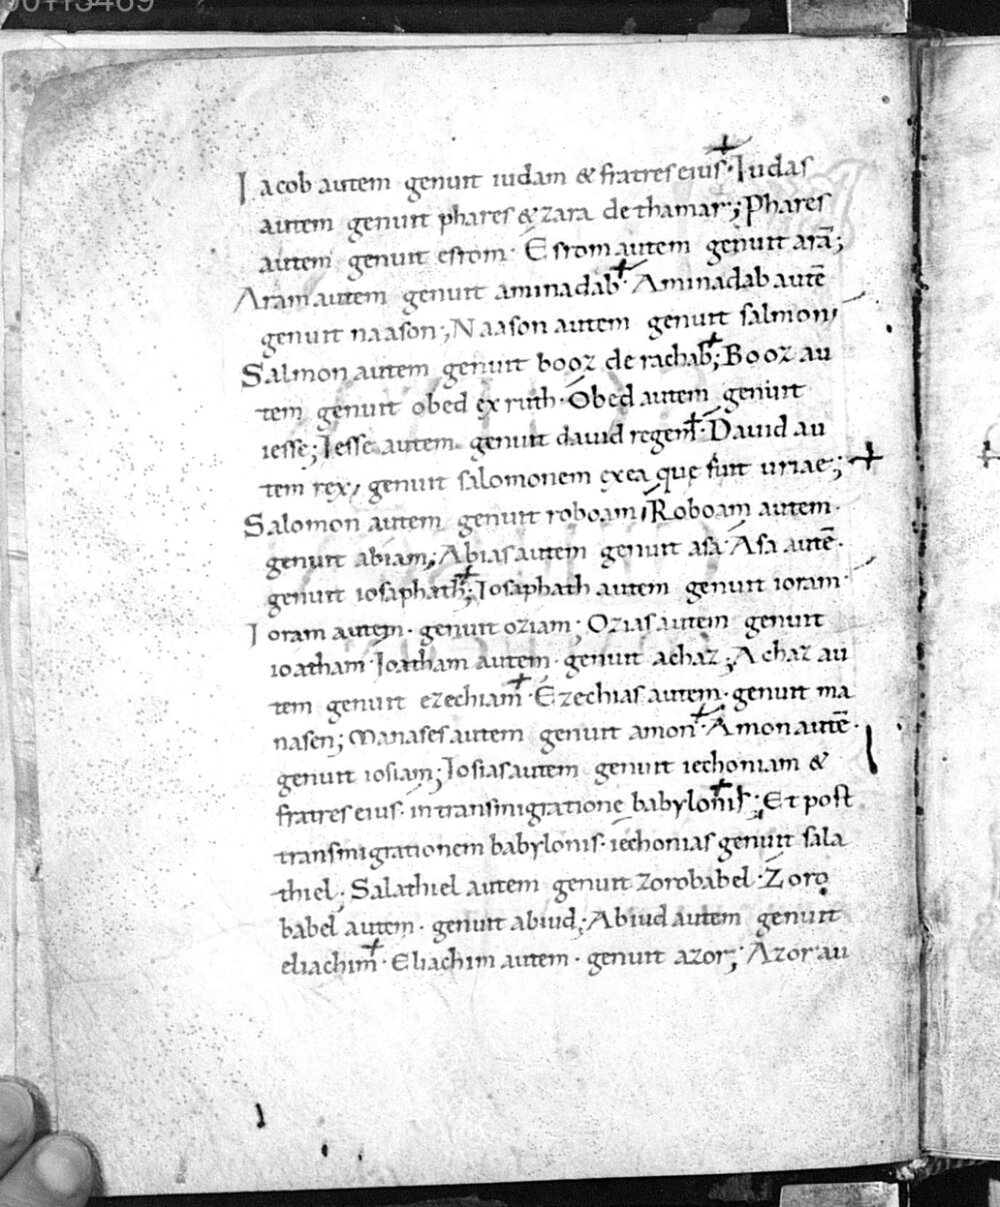 Iacob autem genuit iudam & fratres eius· Iudas
autem genuit phares & zara de thamar; Phares
autem genuit esrom· Esrom autem genuit arā;
Aram autem genuit aminadab· Aminadab autē
genuit naason; Naason autem genuit salmon;
Salmon autem genuit booz de rachab; Booz au
tem genuit obed ex ruth· Obed autem genuit
iesse; Iesse autem genuit dauid regem· Dauid au
tem rex, genuit salomonem ex ea quę fuit uriae;
Salomon autem genuit roboam; Roboam autem·
genuit abiam; Abias autem genuit asa· Asa autē·
genuit iosaphath; Iosaphath autem genuit ioram·
Ioram autem· genuit oziam; Ozias autem genuit
ioatham· Ioatham autem· genuit achaz; Achaz au
tem genuit ezechiam· Ezechias autem· genuit ma
nasen; Manases autem genuit amon· Amon autē·
genuit iosiam; Iosias autem genuit iechoniam &
fratres eius· in transmigratione babylonis; Et post
transmigrationem babylonis· iechonias genuit sala
thiel; Salathiel autem genuit zorobabel· Zoro
babel autem· genuit abiud; Abiud autem genuit
eliachim· Eliachim autem· genuit azor; Azor au